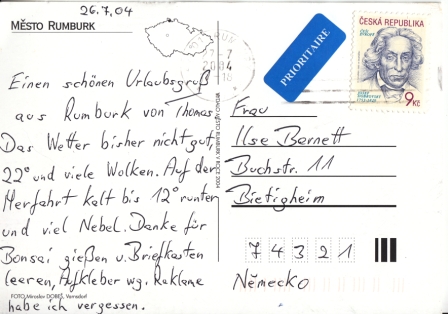 26.7.04
MĚSTO RUMBURK
Einen schönen Urlaubsgruß
aus Rumburk von Thomas
Das Wetter bisher nicht gut,
22° und viele Wolken. Auf der
Herfahrt kalt bis 12° runter
und viel Nebel. Danke für
Bonsai gießen u. Briefkasten
leeren, Aufkleber wg. Reklame
habe ich vergessen.
FOTO Miroslav DOBEŠ, Varnsdorf
VYDALO MĚSTO RUMBURK V ROCE 2004
PRIORITAIRE
ČESKÁ REPUBLIKA
JOSEF
DOBROVSKÝ
9 Kč
Frau
Ilse Bernett
Buchstr. 11
Bietigheim
74321
Německo